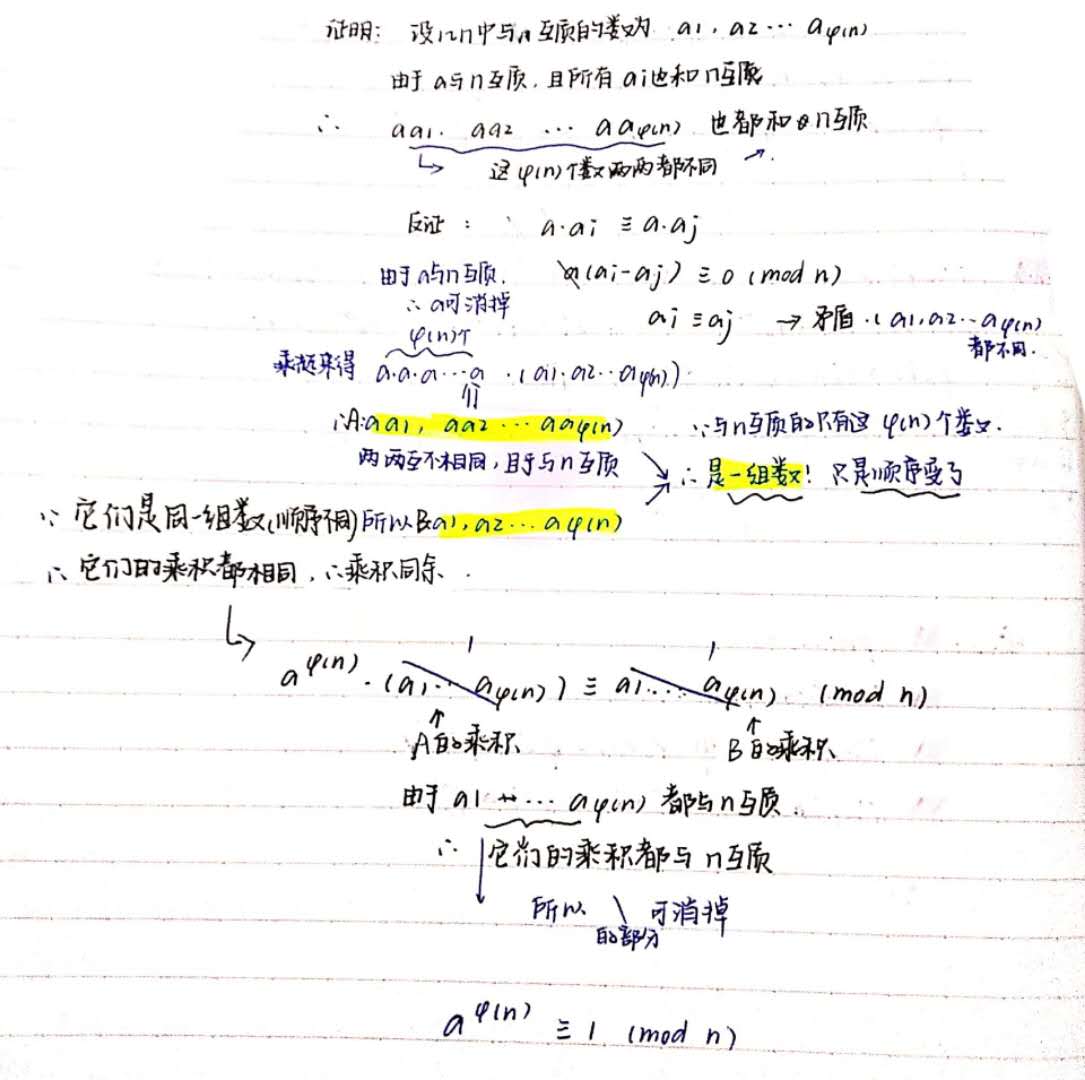 证明: 设1~n中与n互质的数为 a1, a2 ··· aφ(n)
由于a与n互质,且所有ai也和n互质
∴ aa1. aa2 ··· aaφ(n) 也都和n互质
↳ 这φ(n)个数两两都不同
反证: a·ai ≡ a·aj
由于a与n互质, a(ai-aj) ≡ 0 (mod n)
∴ a可消掉 ai ≡ aj → 矛盾.(a1,a2···aφ(n)
都不同.
φ(n)个
乘起来得 a·a·a···a·(a1·a2··aφ(n))
们
∵A:aa1, aa2 ··· aaφ(n) ∵与n互质的只有这φ(n)个数.
两两互不相同,且于与n互质 ∴是一组数! 只是顺序变了
∵它们是同一组数(顺序不同)所以B:a1,a2···aφ(n)
∴它们的乘积都相同,∴乘积同余.
1 1
a^φ(n)·(a1··· aφ(n)) ≡ a1.... aφ(n) (mod n)
↑ ↑
A的乘积 B的乘积
由于a1 ··· aφ(n) 都与n互质.
∴ 它们的乘积都与n互质
所以 \ 可消掉
的部分
a^φ(n) ≡ 1 (mod n)